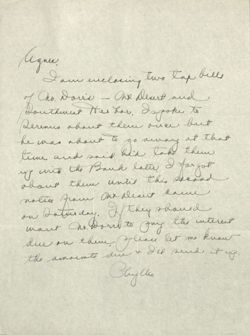 Agnes,
I am inclosing two tax bills
of Mr. Dorr's — Mt Desert and
Southwest Harbor. I spoke to
Serenus about them once but
he was about to go away at that
time and said he'd take them
up with the Bank later. I forgot
about them until this second
notice from Mt Desert came
on Saturday. If they should
want Mr. Dorr to pay the interest
due on them, please let me know
the amounts due & I'll send it up
Phyllis